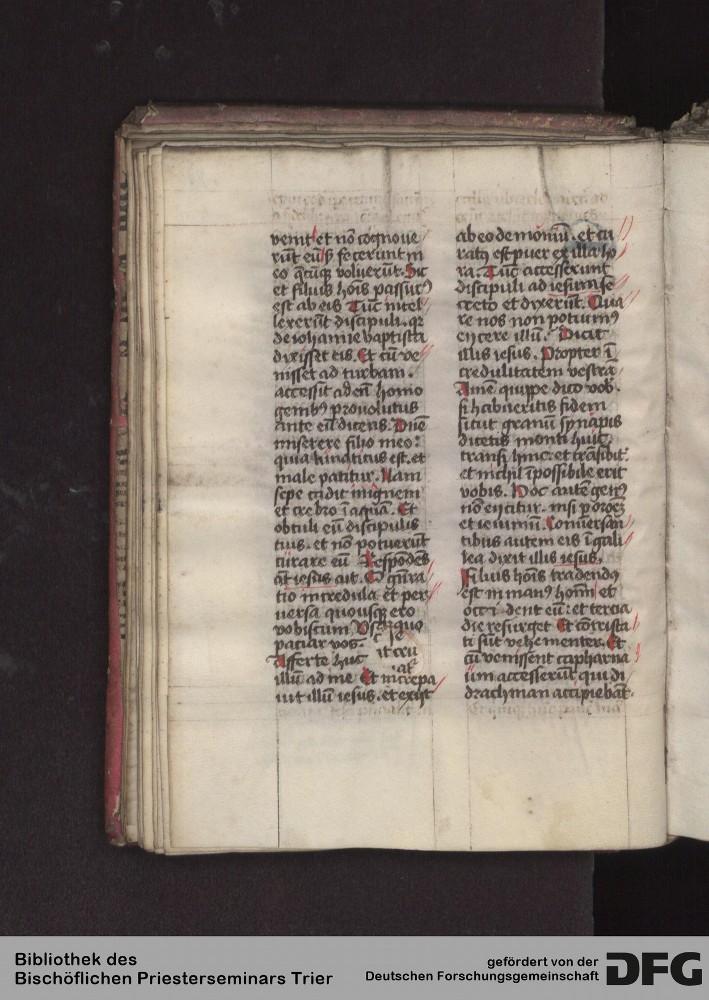 venit et nō cognoue
rūt eū sʒ fecerunt in
eo q̄cūqꝫ voluerūt. Sic
et filius hoīs passurꝰ
est ab eis Tūc intel
lexerūt discipuli. qꝛ
de iohanne baptista
dixisset eis. Et cū ve
nisset ad turbam.
accessit ad eū homo
genibꝰ prouolutus
ante eū dicens. Dn̄e
miserere filio meo:
quia lunaticus est. et
male patitur. Nam
sepe cadit in ignem
et crebro ī aquā. Et
obtuli eū discipulis
tuis. et nō potuerūt
curare eū Respondēs
aūt iesus ait. O gn̄ra
tio incredula et per
uersa quousqꝫ ero
vobiscum Vsqꝫquo
patiar vos.
Afferte huc
illū ad me Et increpa
uit illū iesus. et exijt
ab eo demoniū. et cu
ratꝰ est puer ex illa ho
ra. Tūc accesserunt
discipuli ad iesum se
creto et dixerūt. Qua
re nos non potuimꝰ
eijcere illū. Dicit
illis iesus. Propter ī
credulitatem vestrā
Amē quippe dico vob.
si habueritis fidem
sicut granū synapis
dicetis monti huic
transi hinc. et trāsibit
et nichil īpossibile erit
vobis. Hoc autē genꝰ
nō eijcitur. nisi p oroēꝫ
et ieiuniū. Conuersan
tibus autem eis ī gali
lea dixit illis iesus.
Filius hoīs tradendꝰ
est in manꝰ hoīm et
occident eū: et tercia
die resurget Et cōtrista
ti sūt vehementer. Et
cū venissent capharna
ūm accesserūt qui di
drachman accipiebāt.
Bibliothek des
Bischöflichen Priesterseminars Trier
gefördert von der
Deutschen Forschungsgemeinschaft
DFG